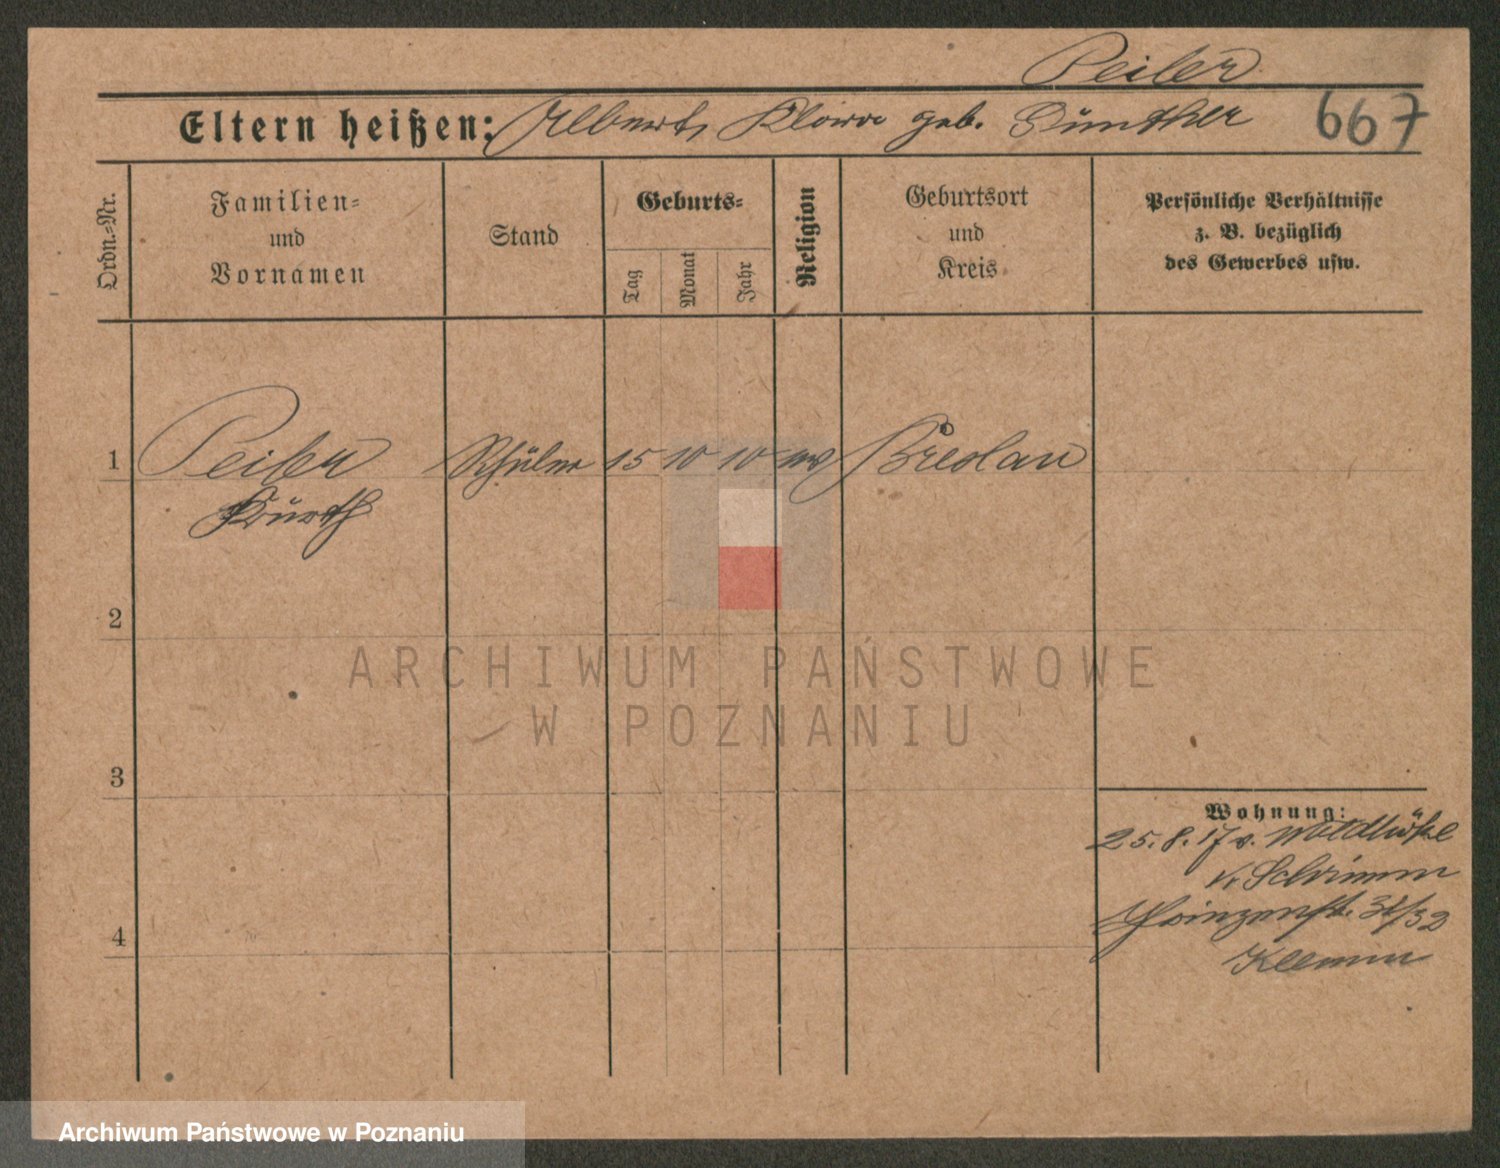 Peiler
Eltern heißen: Albert, Klara geb. Günther
667
Ordn.-Nr.
Familien-
und
Vornamen
Stand
Geburts-
Tag
Monat
Jahr
Religion
Geburtsort
und
Kreis
Persönliche Verhältnisse
z. B. bezüglich
des Gewerbes usw.
1 Peiler Schüler 15 10 10 Breslau
Kurth
2
3
4
Wohnung:
25.8.17 v.
v. Schrimm
31/32
Klemm
ARCHIWUM PAŃSTWOWE
W POZNANIU
Archiwum Państwowe w Poznaniu